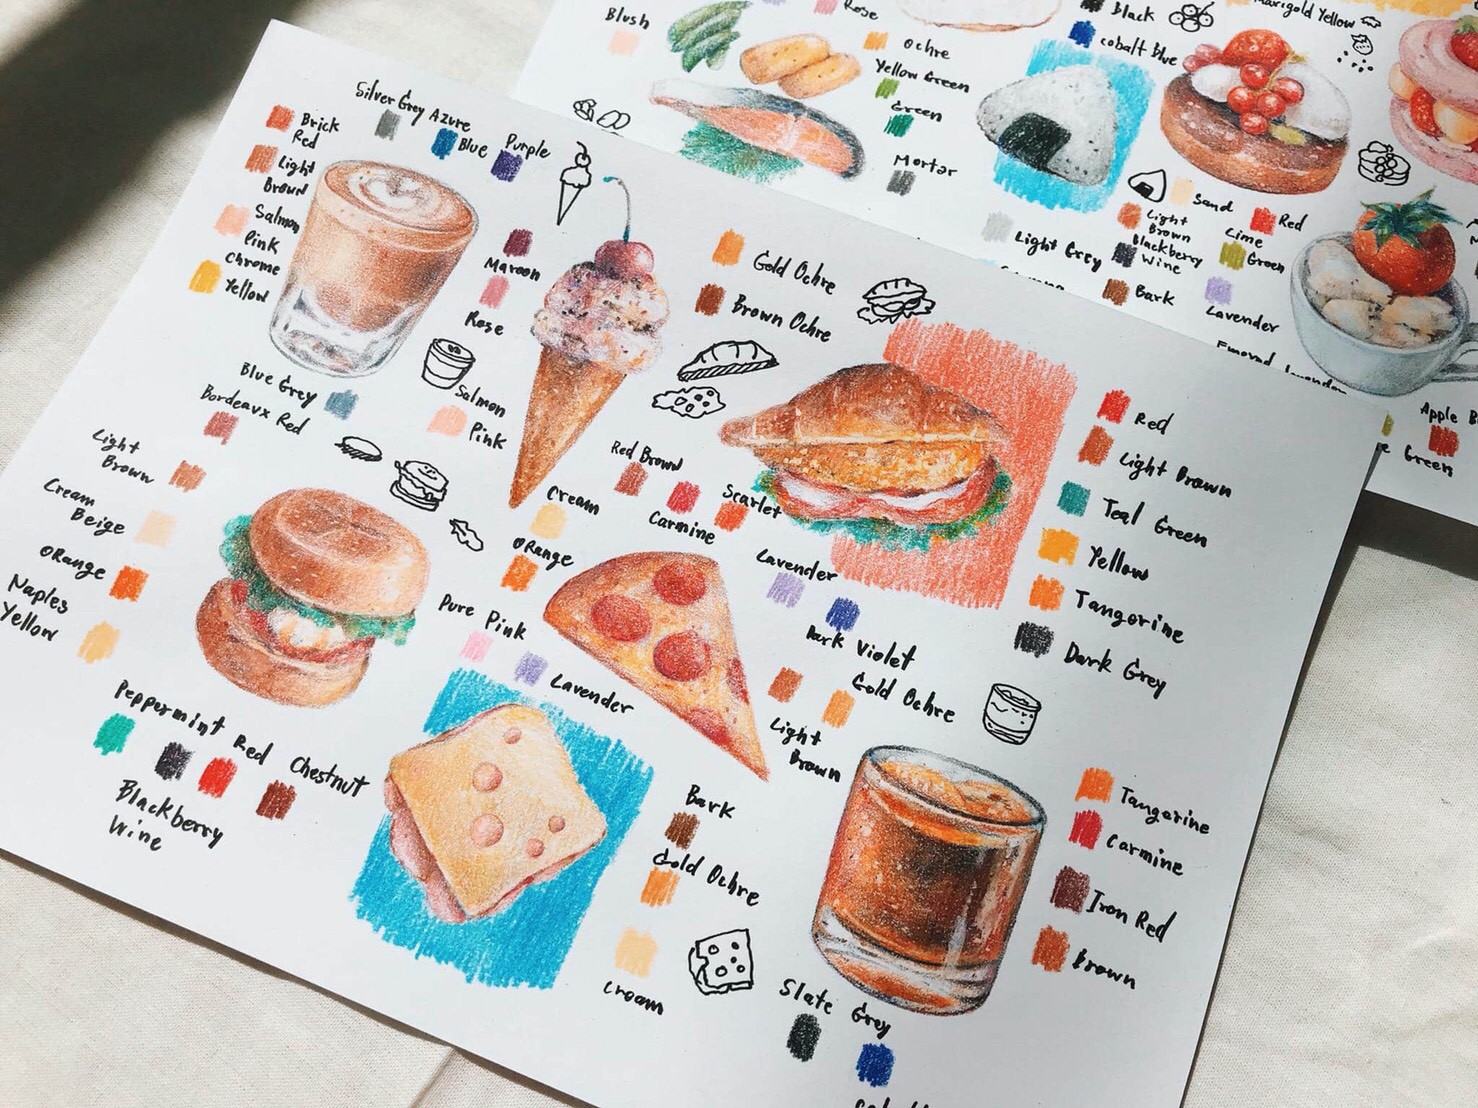 Silver Grey Azure
Blue Purple
Brick
Red
Light
Brown
Salmon
Pink
Chrome
Yellow
Maroon
Rose
Gold Ochre
Brown Ochre
Blue Grey
Bordeaux Red
Salmon
Pink
Light
Brown
Cream
Beige
ORange
Naples
Yellow
Red Brown
Carmine
Scarlet
Cream
ORange
Red
Light Brown
Teal Green
Yellow
Tangerine
Dark Grey
Pure Pink
Lavender
Lavender
Dark Violet
Gold Ochre
Light
Brown
Peppermint Red Chestnut
Blackberry
Wine
Bark
Gold Ochre
Cream
Tangerine
Carmine
Iron Red
Brown
Slate Grey
Blush
Rose
Ochre
Yellow Green
Green
Mortar
Black
cobalt Blue
Marigold Yellow
Sand
Red
Light
Brown
Lime
Green
Blackberry
Wine
Light Grey
Bark
Lavender
Apple
Green